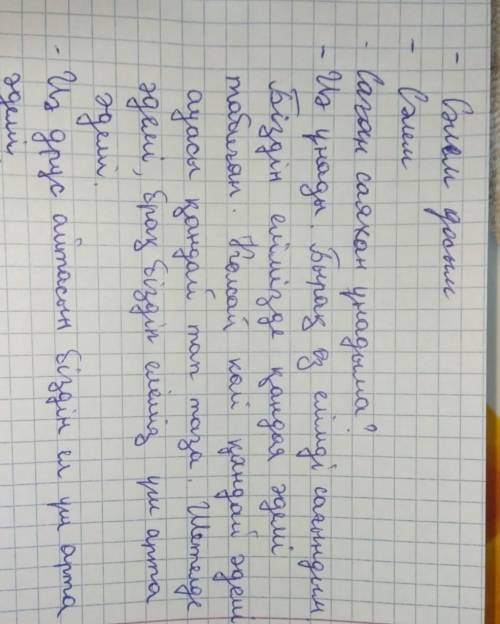 - Сәлем досым
- Сәлем
- Саған саяхан ұнадыма?
- Иә ұнады. Бырақ өз елімді сағындым
Біздін елімізде қандая әдемі
табиған. Көлсай көлі қандай әдемі
ауасы қандай тап таза. Шетелде
әдемі, брақ біздін еліміз үш арта
әдемі.
- Иә дұрус айтасын біздін ел үш арта
әдемі